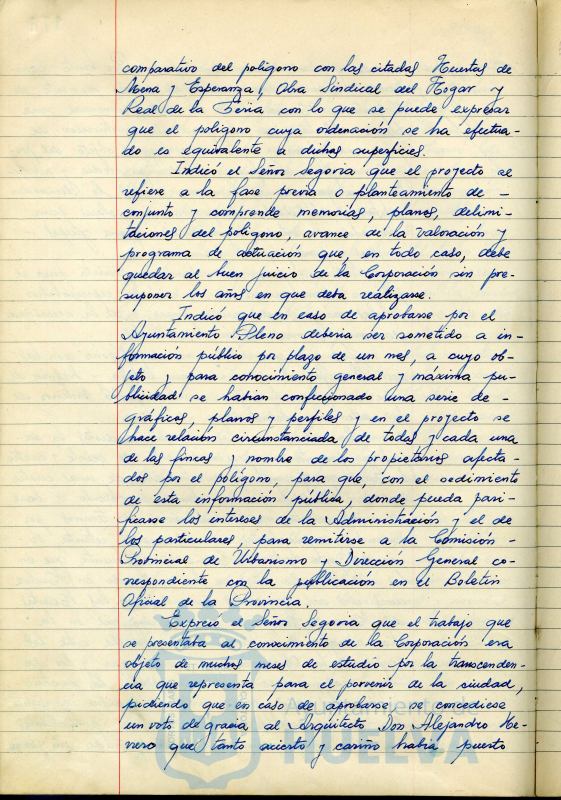 comparativo del poligono con las citadas Huertas de
Mena y Esperanza, Obra Sindical del Hogar y
Real de la Feria, con lo que se puede expresar
que el poligono cuya ordenación se ha efectua-
do es equivalente a dichas superficies.
Indicó el Señor Segovia que el projecto se
refiere a la fase previa o planteamiento de -
conjunto y comprende memorias, planos, delimi-
taciones del poligono, avance de la valoración y
programa de actuación que, en todo caso, debe
quedar al buen juicio de la Corporación sin pre-
suponer los años en que deba realizarse.
Indicó que en caso de aprobarse por el
Ayuntamiento Pleno deberia ser sometido a in-
formación público por plazo de un mes, a cuyo ob-
jeto y para conocimiento general y máxima pu-
blicidad se habian confeccionado una serie de -
gráficas, planos y perfiles y en el projecto se
hace relación circunstanciada de todas y cada una
de las fincas y nombre de los propietarios afecta-
dos por el polígono, para que, con el sedimiento
de esta información pública, donde pueda puri-
ficarse los intereses de la Administración y el de
los particulares, para remitirse a la Comisión -
Provincial de Urbanismo y Dirección General co-
rrespondiente con la publicación en el Boletin
Oficial de la Provincia.
Expresó el Señor Segovia que el trabajo que
se presentaba al conocimiento de la Corporación era
objeto de muchos meses de estudio por la transcenden-
cia que representa para el porvenir de la ciudad,
pidiendo que en caso de aprobarse, se concediese
un voto de gracia al Arquitecto Don Alejandro He-
rrero que tanto acierto y cariño habia puesto
HUELVA